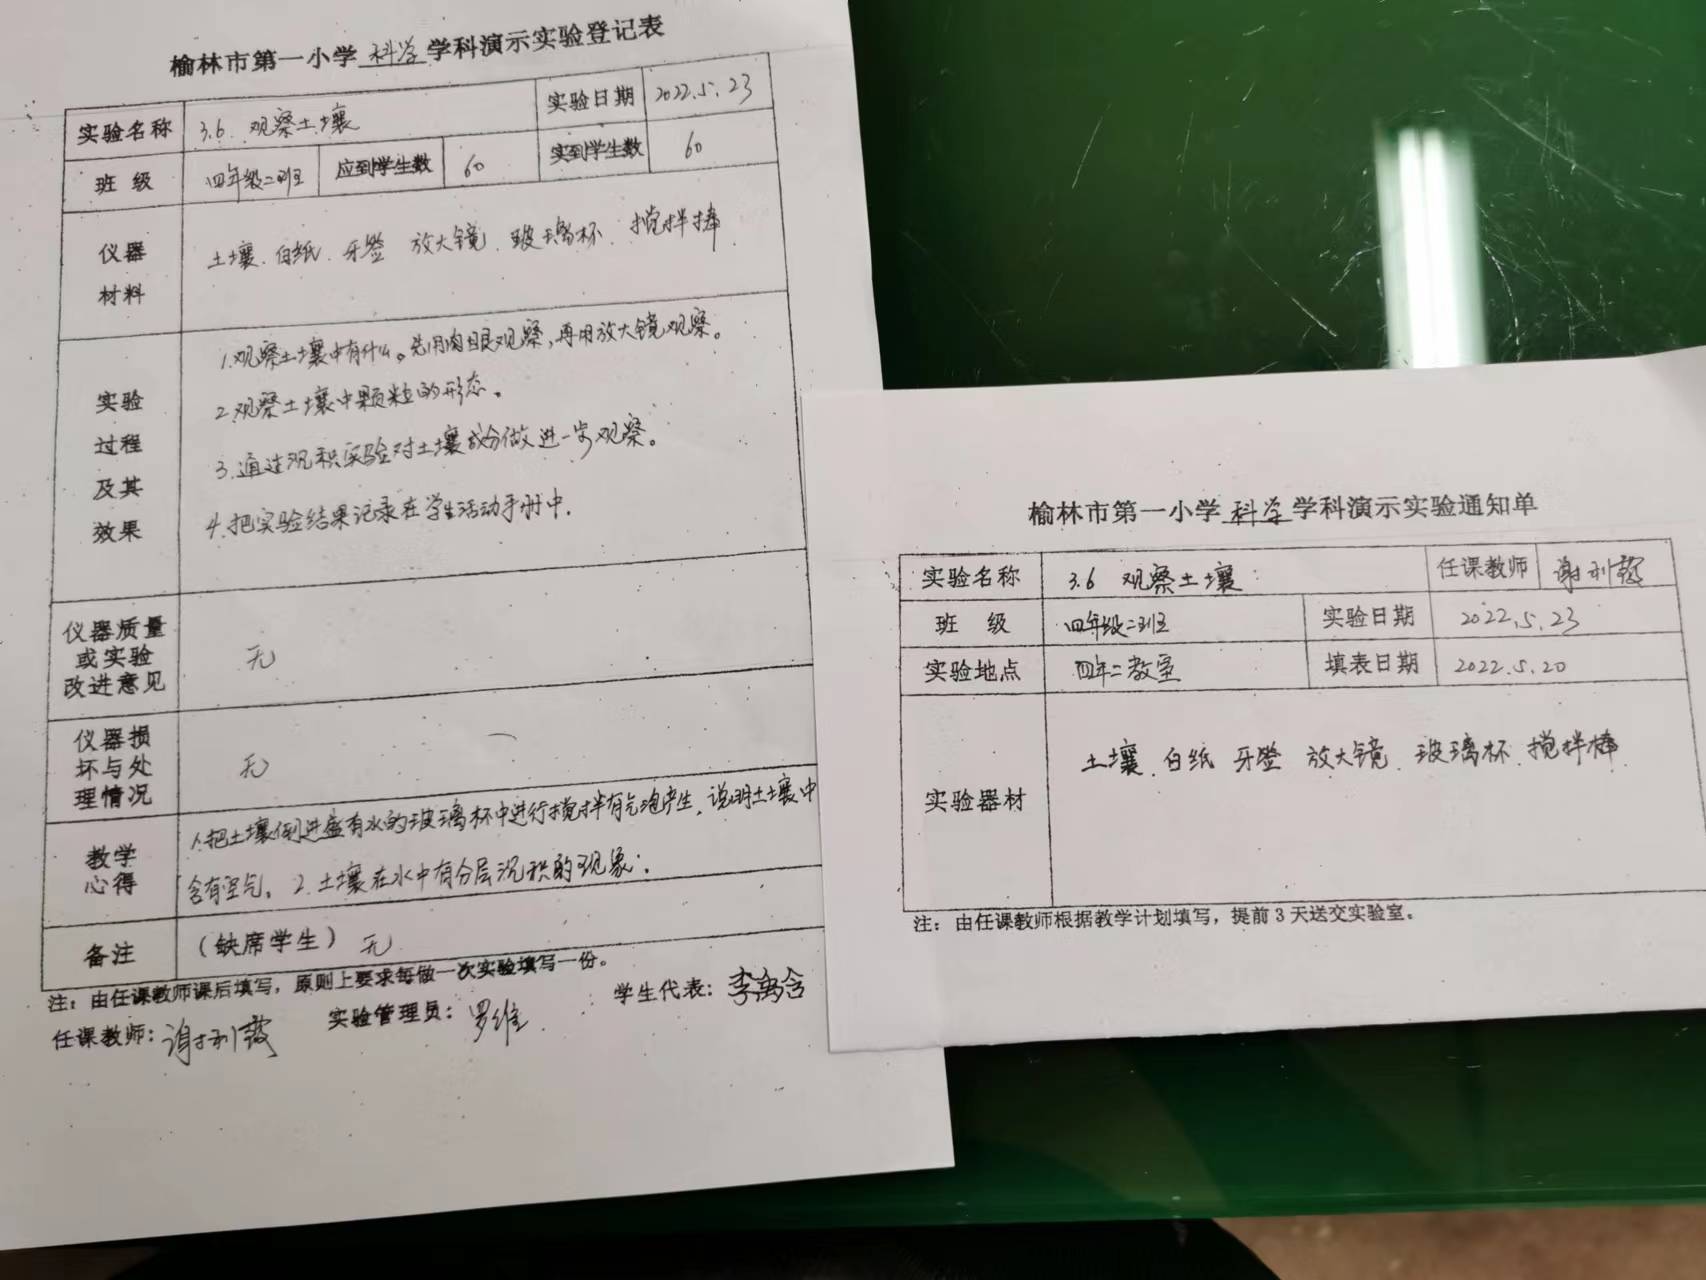 榆林市第一小学 科学 学科演示实验登记表
实验名称 3.6 观察土壤 实验日期 2022.5.23
班 级 四年级二班 应到学生数 60 实到学生数 60
仪器
材料
土壤、白纸、牙签 放大镜、玻璃杯、搅拌棒
实验
过程
及其
效果
1.观察土壤中有什么。先用肉眼观察,再用放大镜观察。
2.观察土壤中颗粒的形态。
3.通过沉积实验对土壤成分做进一步观察。
4.把实验结果记录在学生活动手册中.
仪器质量
或实验
改进意见
无
仪器损
坏与处
理情况
无
教学
心得
1.把土壤倒进盛有水的玻璃杯中进行搅拌有气泡产生,说明土壤中
含有空气。2.土壤在水中有分层沉积的现象.
备注 (缺席学生) 无
注:由任课教师课后填写,原则上要求每做一次实验填写一份。
任课教师:谢利 实验管理员:罗维 学生代表:李禹含
榆林市第一小学 科学 学科演示实验通知单
实验名称 3.6 观察土壤 任课教师 谢利
班 级 四年级二班 实验日期 2022.5.23
实验地点 四年二教室 填表日期 2022.5.20
实验器材 土壤、白纸 牙签 放大镜、玻璃杯、搅拌棒
注:由任课教师根据教学计划填写,提前3天送交实验室。